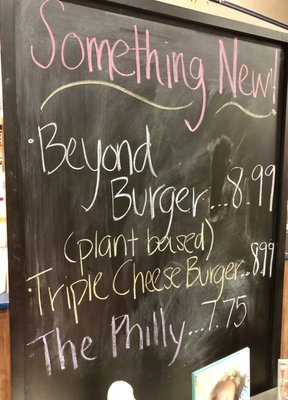 Something New!
·Beyond
Burger...8.99
(plant based)
·Triple Cheese Burger..8.99
The Philly...7.75